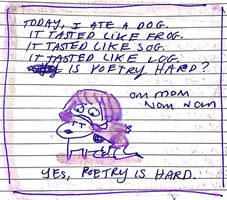 TODAY, I ATE A DOG.
IT TASTED LIKE FROG.
IT TASTED LIKE SOG.
IT TASTED LIKE LOG.
IS POETRY HARD?
OM MOM
NOM NOM
YES, POETRY IS HARD.